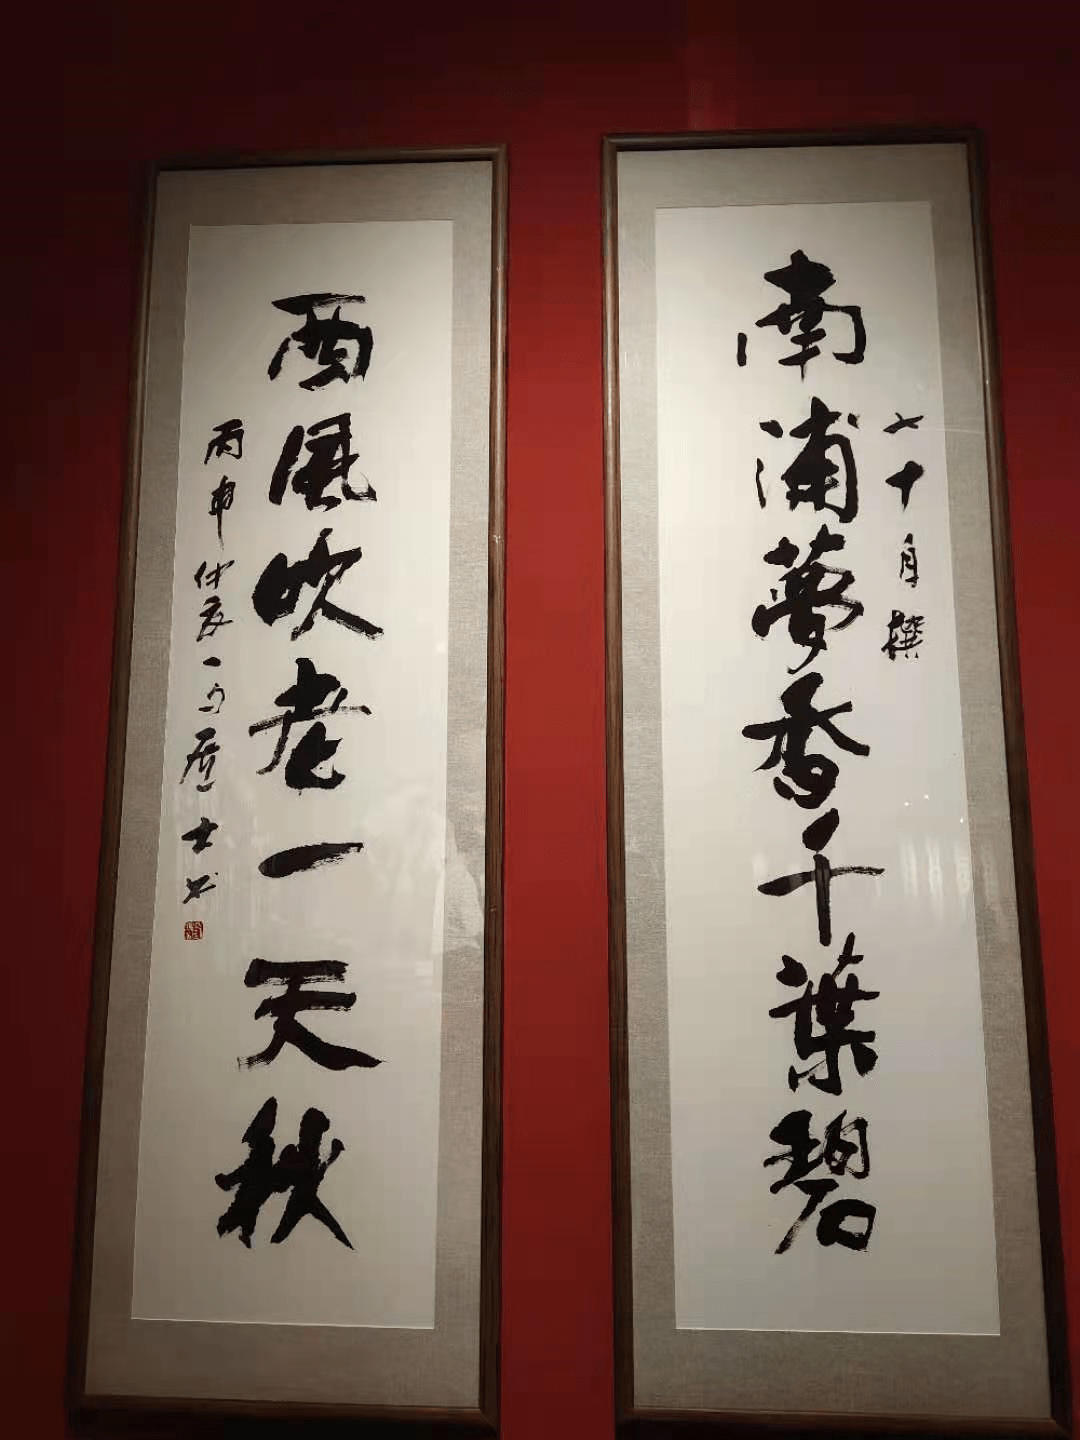 七十月撰
南浦夢香千葉碧
西風吹老一天秋
丙申仲夏一勺居士书